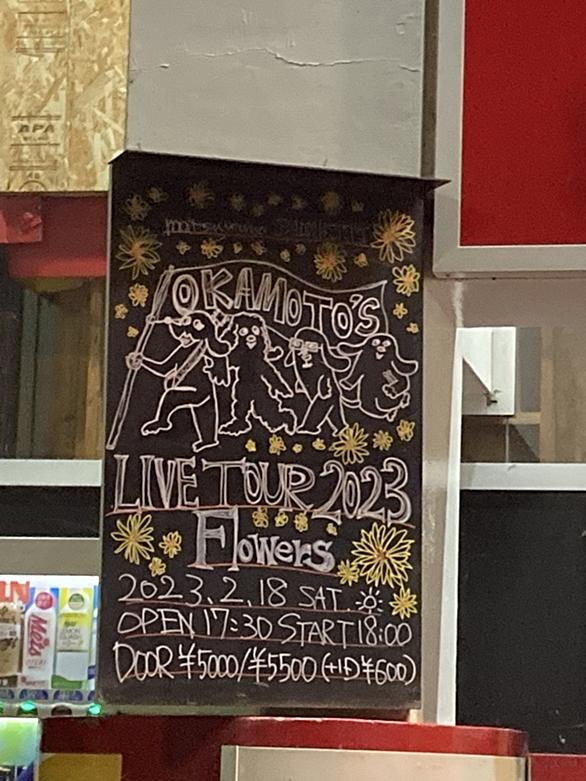 APA
OKAMOTO'S
LIVE TOUR 2023
Flowers
2023.2.18 SAT.
OPEN 17:30 START 18:00
DOOR ¥5000/¥5500 (+1D ¥600)
Mets